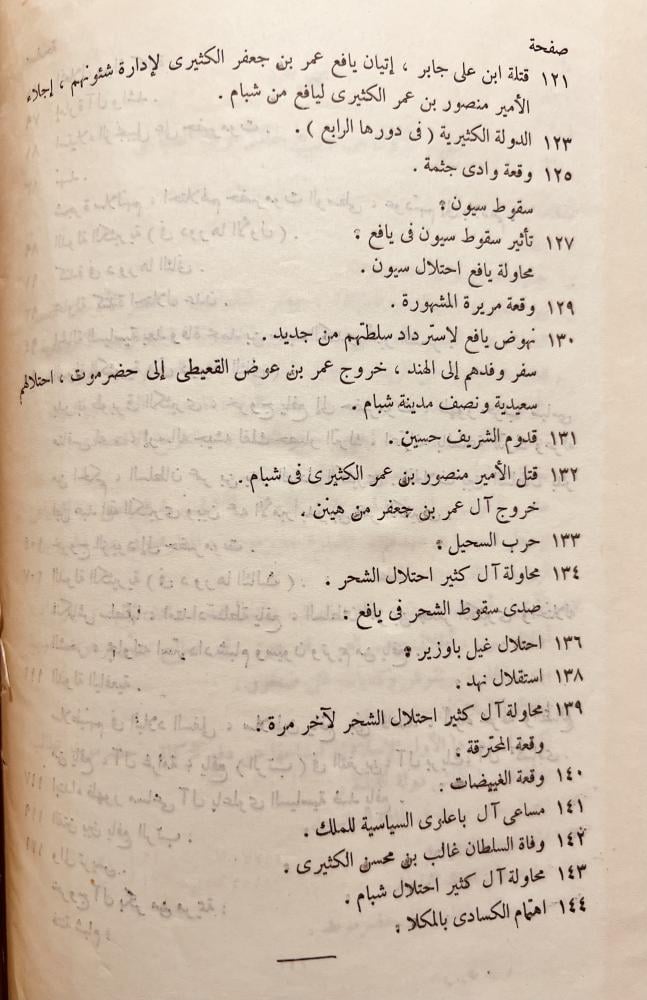 صفحة
١٢١ قتلة ابن على جابر ، إتيان يافع عمر بن جعفر الكثيرى لإدارة شئونهم ، إجلاء
الأمير منصور بن عمر الكثيرى ليافع من شبام .
١٢٣ الدولة الكثيرية ( فى دورها الرابع ) .
١٢٥ وقعة وادى جثمة .
سقوط سيون .
١٢٧ تأثير سقوط سيون فى يافع .
محاولة يافع احتلال سيون .
١٢٩ وقعة مريرة المشهورة .
١٣٠ نهوض يافع لاسترداد سلطتهم من جديد .
سفر وفدهم إلى الهند ، خروج عمر بن عوض القعيطى إلى حضرموت ، احتلالهم
سعيدية ونصف مدينة شبام .
١٣١ قدوم الشريف حسين .
١٣٢ قتل الأمير منصور بن عمر الكثيرى فى شبام .
خروج آل عمر بن جعفر من هينن .
١٣٣ حرب السحيل .
١٣٤ محاولة آل كثير احتلال الشحر .
صدى سقوط الشحر فى يافع .
١٣٦ احتلال غيل باوزير .
١٣٨ استقلال نهد .
١٣٩ محاولة آل كثير احتلال الشحر لآخر مرة .
وقعة المحترقة .
١٤٠ وقعة الغييضات .
١٤١ مساعى آل باعلوى السياسية للملك .
١٤٢ وفاة السلطان غالب بن محسن الكثيرى .
١٤٣ محاولة آل كثير احتلال شبام .
١٤٤ اهتمام الكسادى بالمكلا .